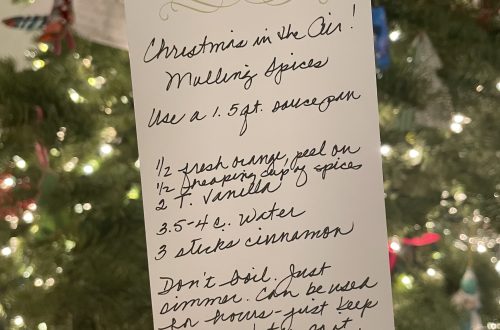 Christmas in the Air!
Mulling Spices
Use a 1.5 qt. saucepan
1/2 fresh orange, peel on
1/2 heaping cup of spices
2 T. Vanilla
3.5-4 c. water
3 sticks cinnamon
Don't boil. Just
simmer. Can be used
for hours-just keep